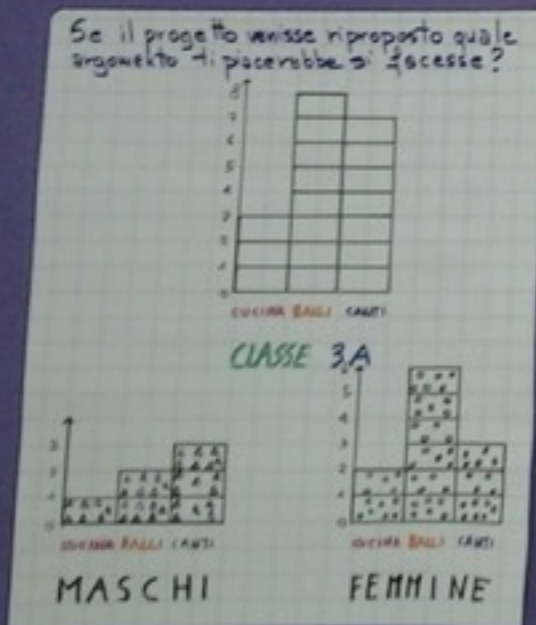 Se il progetto venisse riproposto quale
argomento ti piacerebbe si facesse?
8
7
6
5
4
3
2
1
0
CUCINA BALLI CANTI
CLASSE 3A
3
2
1
0
CUCINA BALLI CANTI
MASCHI
5
4
3
2
1
0
CUCINA BALLI CANTI
FEMMINE